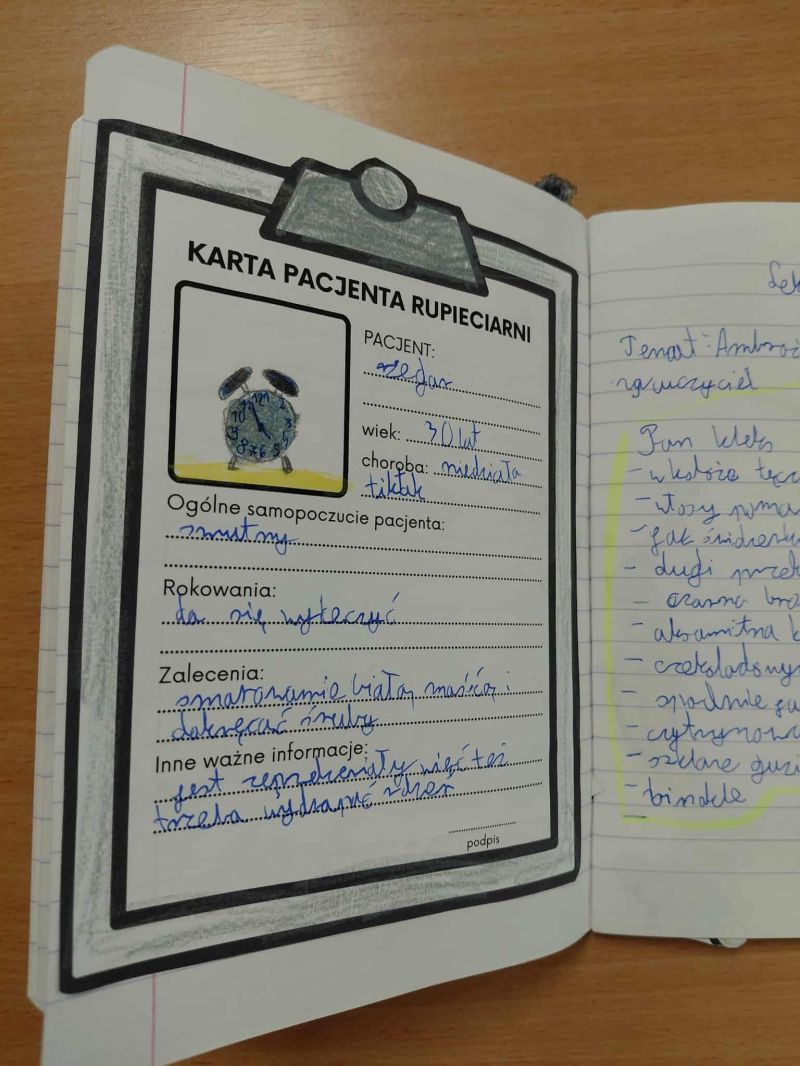 KARTA PACJENTA RUPIECIARNI
PACJENT:
zegar
wiek: 30 lat
choroba: niedziała
tiktak
Ogólne samopoczucie pacjenta:
smutny
Rokowania:
da się wyłeczyć
Zalecenia:
smarowanie białą maścią i
dakręcać śruby
Inne ważne informacje:
jest zeprdzeniały więć też
trzeba wydrapać rdzen
podpis
12 1 2 3 4 5 6 7 8 9 10 11
Lek
Temat: Ambroż
nauczyciel
Pan kleks
- w kolorze tęcz
- włosy poma
- jak świderk
- długi przek
- czarna bro
- aksamitna k
- czekoladowy
- spodnie
- cytrynowa
- szklane guzi
- binokle